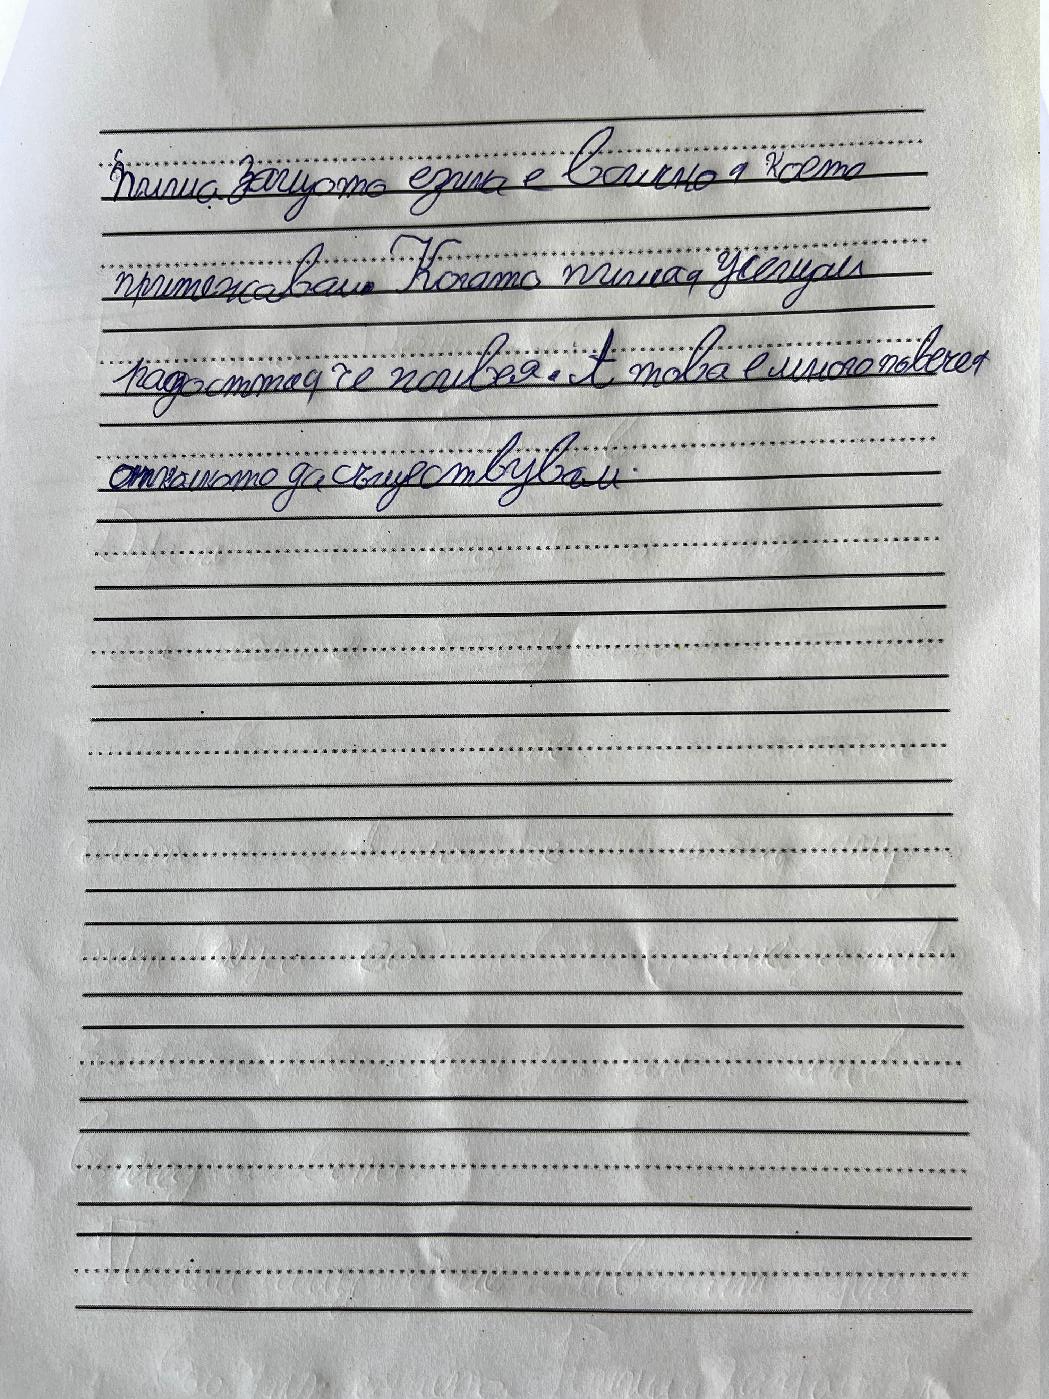 Пиша защото езика е всичко, което
притежавам. Когато пиша, усещам
радостта, че живея. А това е много повече,
отколкото да съществувам.